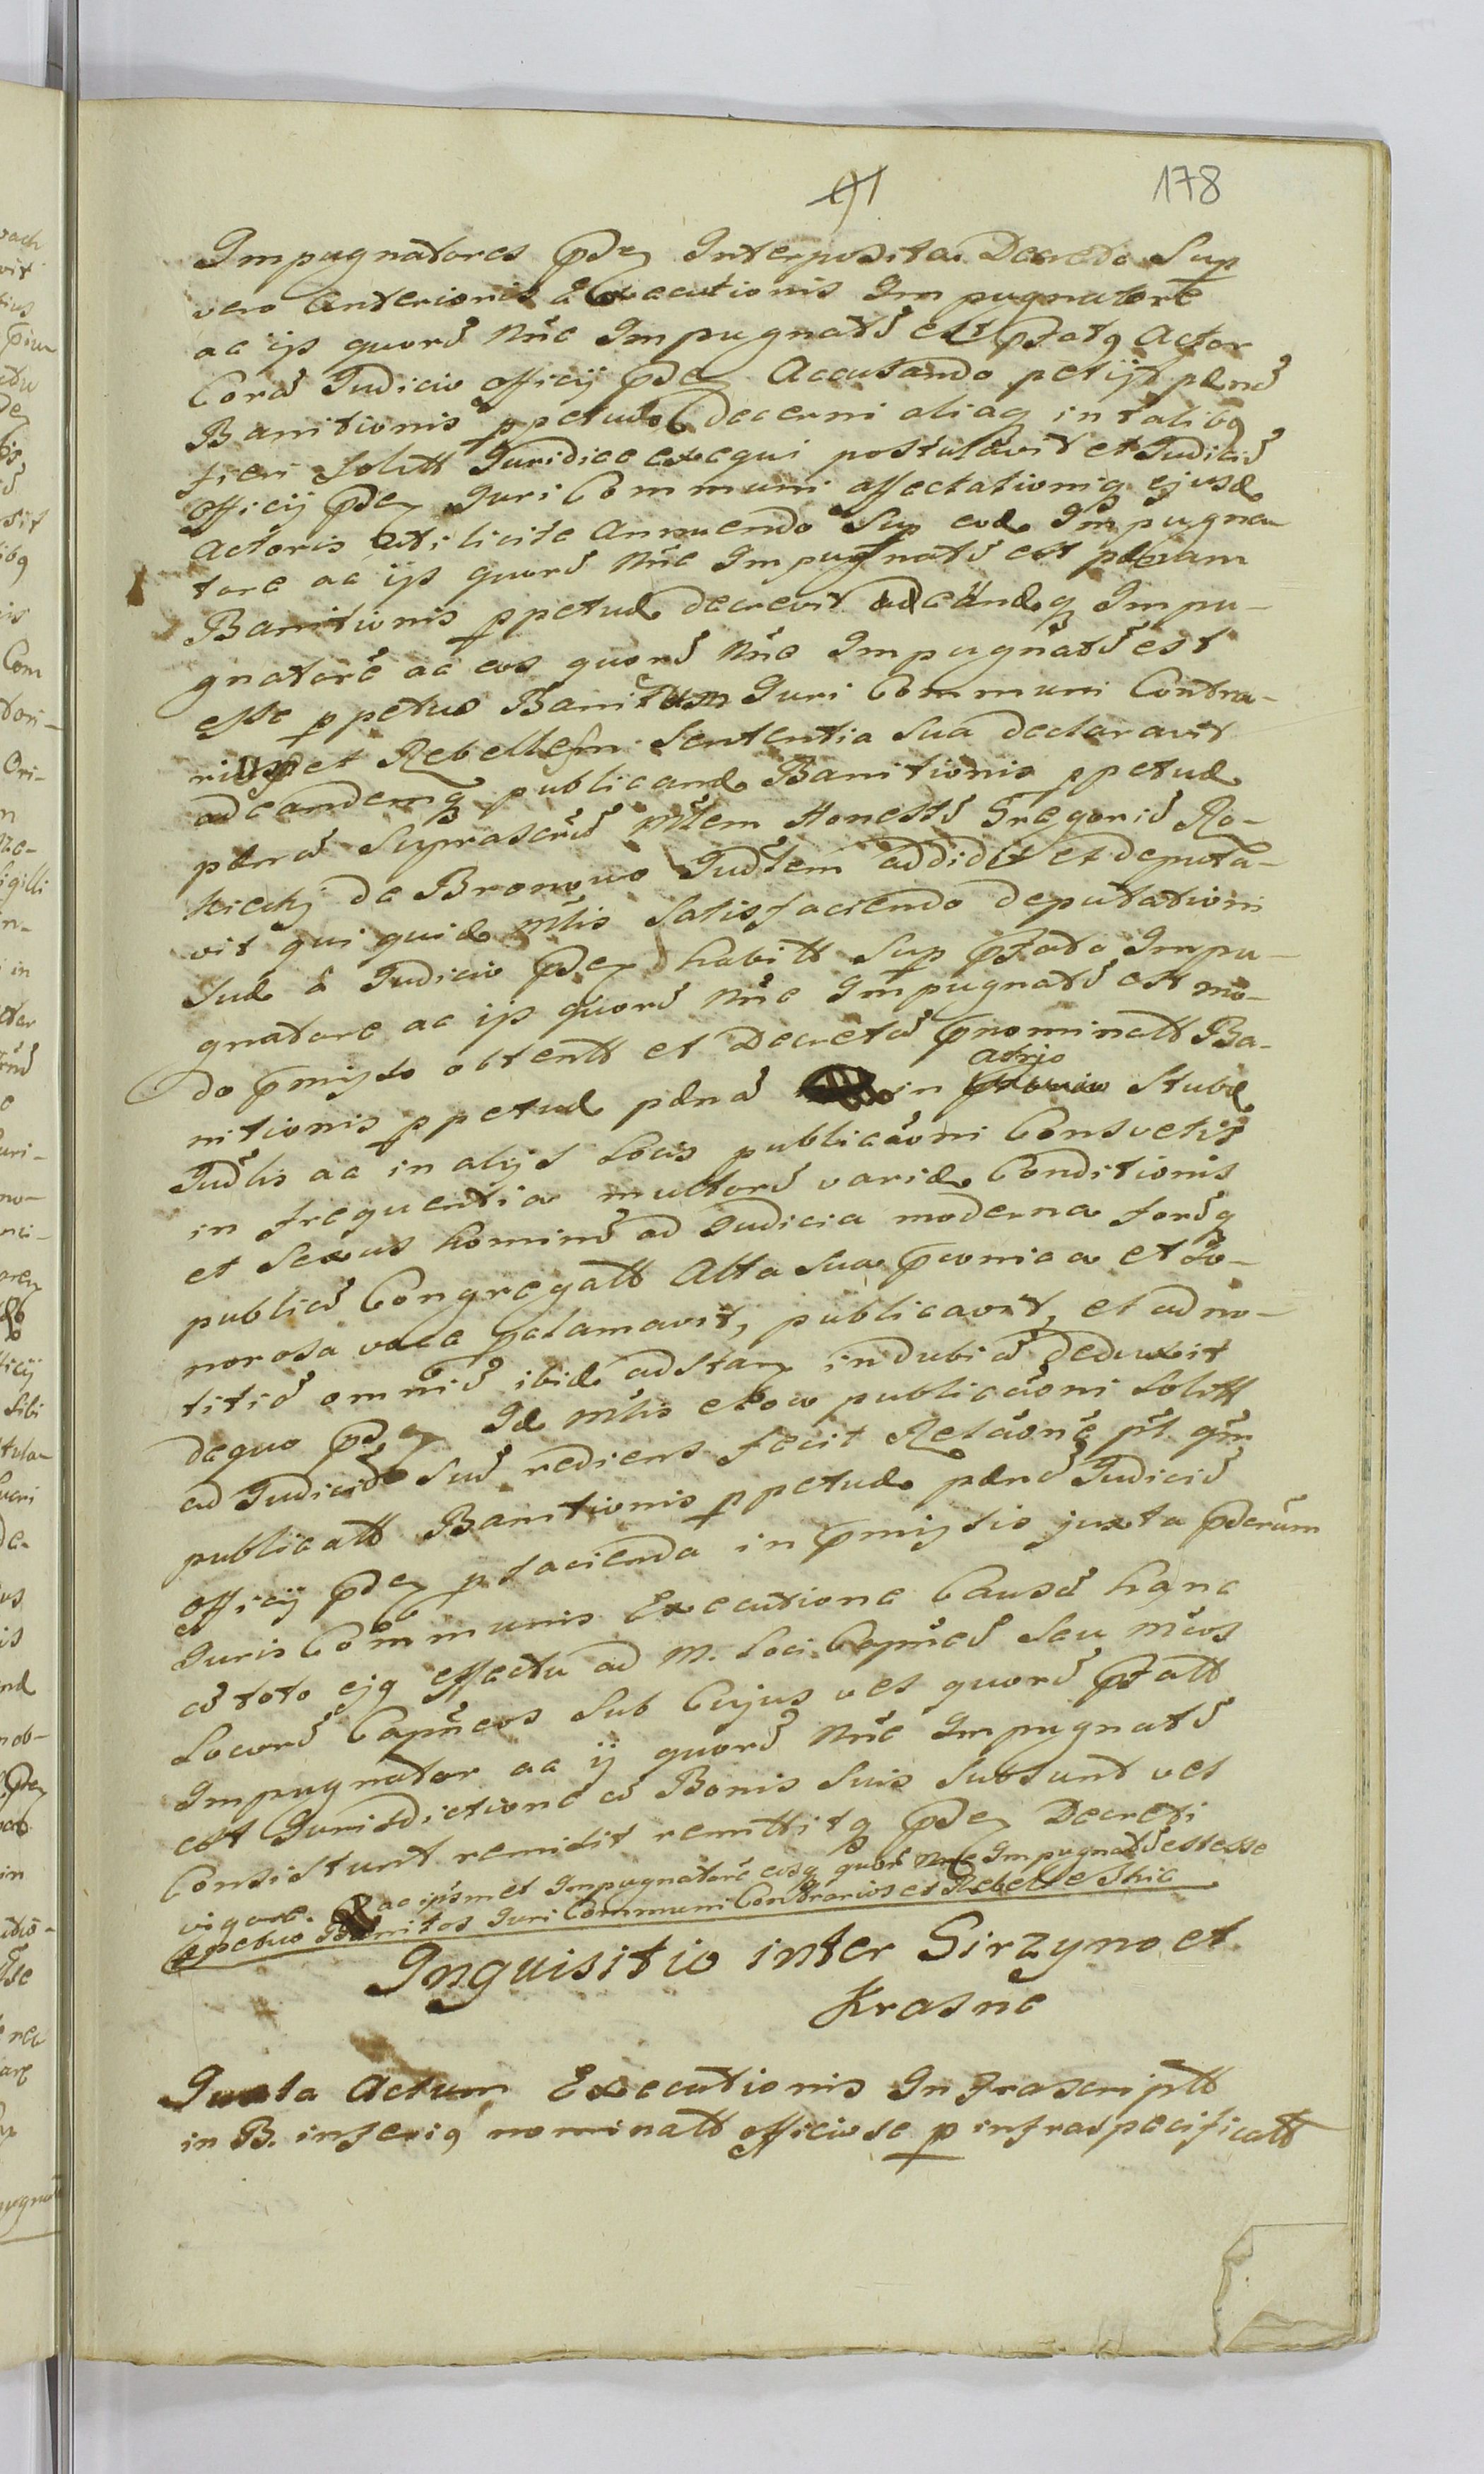 91 178
Impugnatores pden Interposita Decreto Sup
vero anterionis Executionis Impugnatore
ac ijs quorũ nñe Impugnatũ est pfatq Actor
Corã Judicio officij pden Accusando petijt pænã
Banitionis ppetuæ decerni aliaq in talibq
fieri solitt Juridice exequi postulavit et Judiciũ
officij pden Juri Communi affectationiq ejusd
Actoris uti licite annuendo Sup eod Impugna
tore ac ijs quorũ nñe Impugnatũ est pænam
Banitionis ppetuæ decrevit ad eandq Impu-
gnatorẽ ac eos quorũ nñe Impugnatũ est
esse ppetuo Banitum Juri Communi Contra-
rium et Rebellem Sententia sua declaravit
ad eandemq publicand Banitionis ppetuæ
pænã Suprascrũ Mlem Honestũ Gregoriũ Ro-
kicky de Bronowo Judlem addidit et deputa-
vit qui quid Mlis Satisfaciendo deputationi
suæ à Judicio pden habitt Sup pfato Impu-
gnatore ac ijs quorũ nñe Impugnatũ est mo-
do pmisso obtentt et Decretã pnominatt Ba-
nitionis ppetuæ pænã in atrio Stubæ
Judlis ac in alijs Locis publicãoni Consvetis
in frequentia multorũ variæ Conditionis
et Sexus hominũ ad Judicia moderna forũq
publicũ Congregatt Alta sua pconica et So-
norosa voce pclamavit, publicavit, et ad no-
titiã omniũ ibid adstan indubiã deduxit
dequo pden Id Mlis exow publicãoni solitt
ad Judiciũ Suũ rediens fecit Relãonẽ pt qm
publicatt Banitionis ppetuæ pænã Judiciũ
officij pden p facienda in pmissis juxta pderum
Juris Communis Executione Causã hanc
cũ toto ejq effectu ad M. Loci Capñeũ seu Mcos
Locorũ Capñeos sub Cujus vel quorũ pfatt
Impugnator ac ij quorũ nñe Impugnatũ
est Jurisdictione cũ Bonis suis subsunt vel
Consistunt remisit remittitq pden Decreti
vigore. ac ipsmet Impugnatorẽ eosq quorũ nñe Impugnatũ est esse
ppetuo Banitos Juri Communi Contrarios et Rebelle Shic
Inquisitio inter Sirzyno et
Krasne
Juxta Actum Executionis Infrascriptt
in B. inferiq nominatt officiose p infraspecificatt